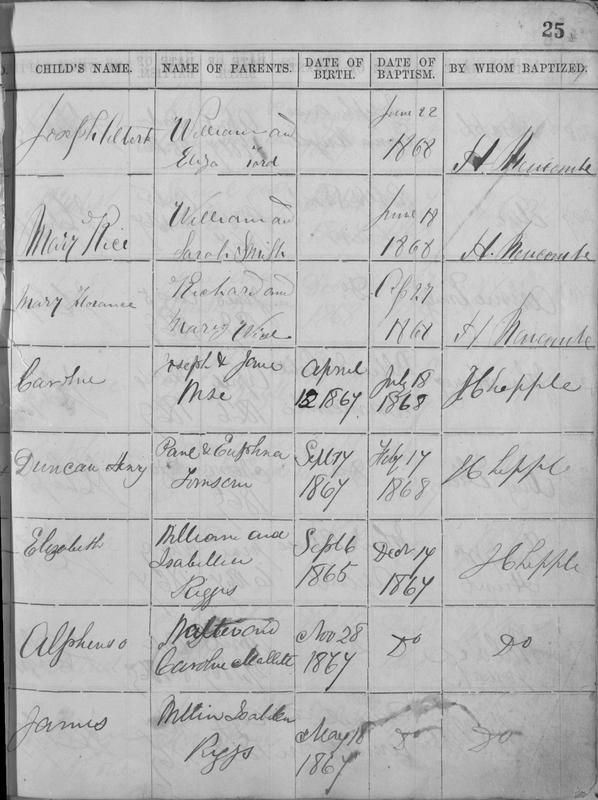 25
CHILD'S NAME. NAME OF PARENTS. DATE OF BIRTH. DATE OF BAPTISM. BY WHOM BAPTIZED.
Joseph William and June 22
Eliza 1868 H. Newcombe
William and June 18
Mary Rice Sarah Smith 1868 H. Newcombe
Mary Florance Richard and 27
Mary Wise 1868 H Newcombe
Caroline Joseph & Jane April July 18
Wise 12 1867 1868 J Hepple
Duncan Henry & Sept 17 Feby 17
1867 1868 J Hepple
Elizabeth William and Sept 6 Decr 14
Isabellia 1865 1867 J Hepple
Riggs
Alphonso Walter and Nov 28 Do Do
Caroline Mallett 1867
James Isabellia May 18 Do Do
Riggs 1867